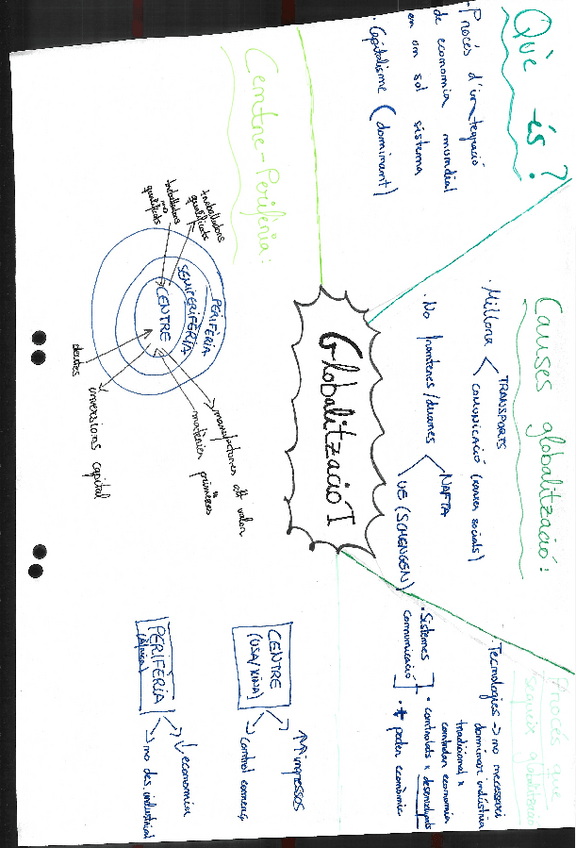 Què és?
· Procés d'integració
de economia mundial
en un sol sistema
· Capitalisme (dominant)
Causes globalització:
· Millora < TRANSPORTS
comunicació (xarxes socials)
· No fronteres/duanes < NAFTA
UE (SCHENGEN)
Procés que
segueix globalització
· Tecnologies → no necessari
dominar indústria
tradicional x
controlar economia
· Sistemes
comunicació
· controlats x desenvolupats
· + poder econòmic
GlobalitzacióI
Centre-Perifèria:
treballadors
qualificats
treballadors
no
qualificats
PERIFÈRIA
SEMIPERIFÈRIA
CENTRE
deutes
inversions capital
matèries primeres
manufactures alt valor
CENTRE
(USA/XINA)
↑↑ ingressos
control comerç
PERIFÈRIA
(Àfrica)
↓ economia
no des. industrial